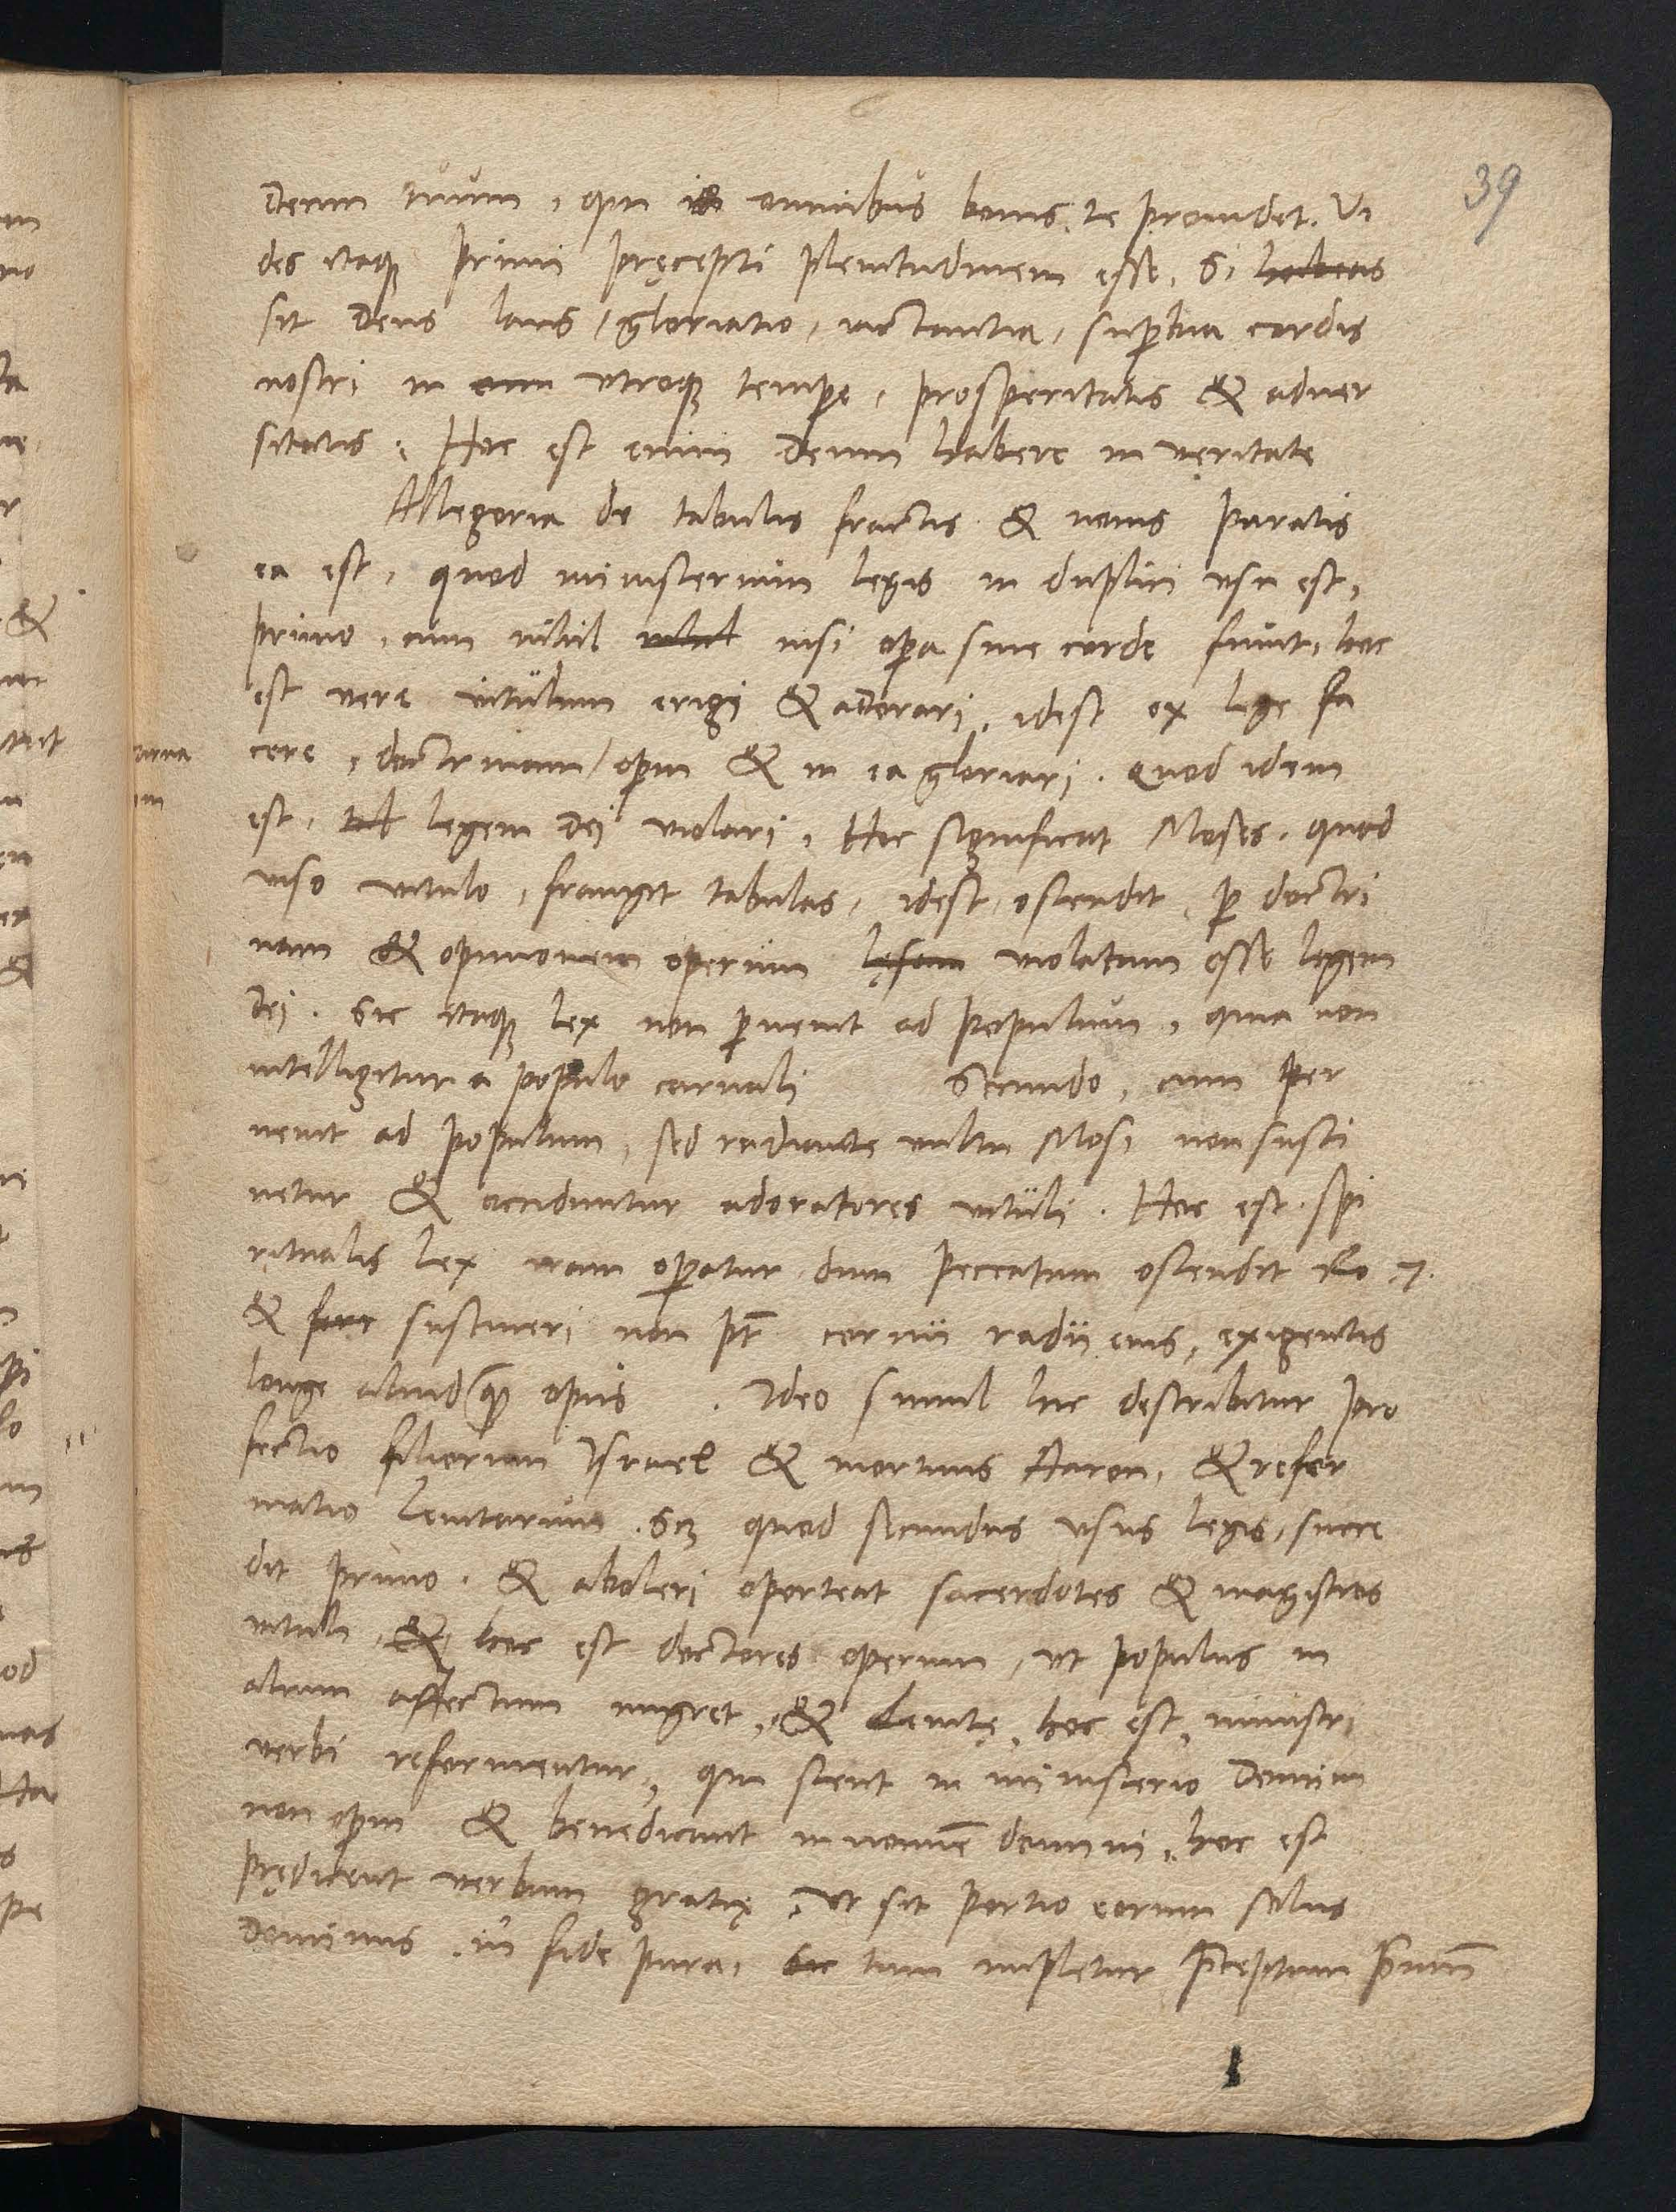 39
Deum tuum, qui in omnibus bonis te prouidet. Vi
des itaque primi pręcepti plenitudinem esse, Si habeas
sit Deus laus, gloriatio, iactantia, suꝑbia cordis
nostri in omni vtroque tempe, prosperitatis & aduer
sitatis. Hoc est enim Deum habere in veritate
Allegoria de tabulis fractis & nouis paratis
ea est, quod ministerium legis in duplici vsu est,
primo, cum nihil nihil nisi opa sine corde fiunt, hoc
est vere vitulum erigi & adorari, idest ex lege fa
cere, doctrinam opum & in ea gloriari. Quod idem
est, legem Dej violari, Hoc significat Moses, quod
viso vitulo, frangit tabulas, idest ostendit, ꝑ doctri
nam & opinionem operum lęsam violatam esse legem
Dej. Sic itaque lex non ꝑuenit ad populum, quia non
intelligitur a populo carnali Secundo, cum per
uenit ad populum, sed radiante vultu Mosi non susti
netur & occiduntur adoratores vituli. Hoc est spi
ritualis lex iram opatur dum peccatum ostendit Ro 7.
& ferr sustineri non pt cornu radii eius, exigentis
longe aliud quam opus. Ideo simul hic describitur pro
fectio filiorum Israel & mortuus Aaron, & refor
matio Leuitarum. Scz quod secundus vsus legis, succe
dit primo. & aboleri oporteat sacerdotes & magistros
vituli, & hoc est doctores operum, vt populus in
alium affectum migret, & Leuitę, hoc est, ministri
verbi reformentur, qui stent in ministerio Domini
non opum & benedicant in nomine domini, hoc est
prędicent verbum gratię, Vt sit portio eorum solus
Dominus in fide pura, sic tum impletur pceptum primum